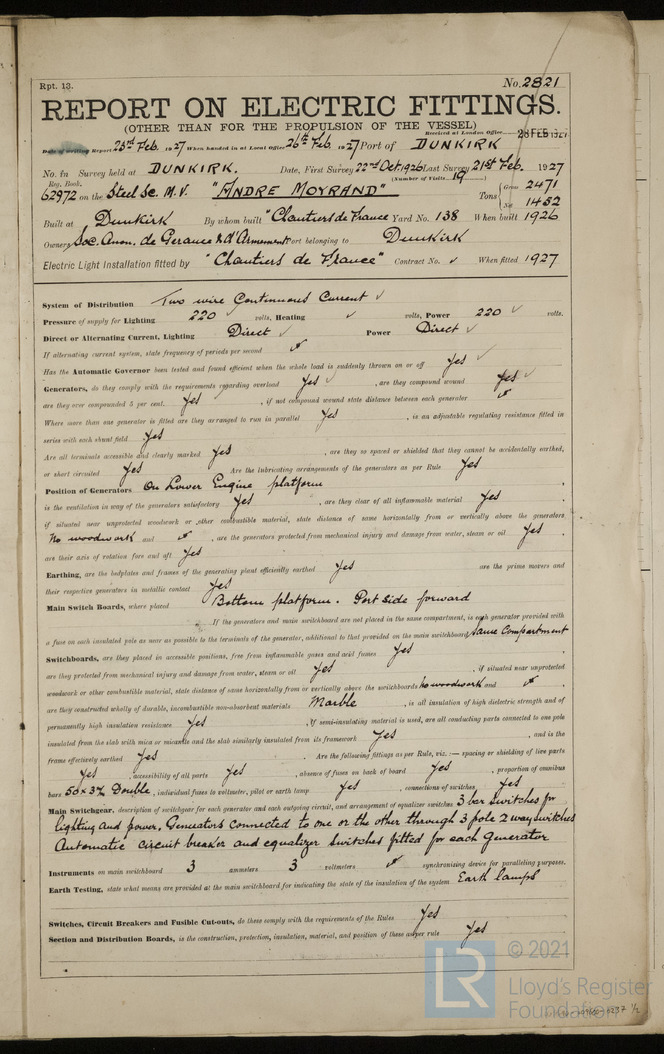 Rpt. 13.
No. 2821
REPORT ON ELECTRIC FITTINGS.
(OTHER THAN FOR THE PROPULSION OF THE VESSEL)
Received at London Office 28 FEB 1927
Date of writing Report 25th Feb. 1927 When handed in at Local Office 26th Feb. 1927 Port of DUNKIRK
No. in Survey held at DUNKIRK. Date, First Survey 22nd Oct. 1926 Last Survey 21st Feb. 1927
Reg. Book. (Number of Visits 19)
62972 on the Steel Sc. M.V. "ANDRE MOYRAND" Tons Gross 2471
Net 1452
Built at Dunkirk By whom built "Chantiers de France" Yard No. 138 When built 1926
Owners Soc. Anon. de Gerance & d'Armement Port belonging to Dunkirk
Electric Light Installation fitted by "Chantiers de France" Contract No. ✓ When fitted 1927
System of Distribution Two wire Continuous Current ✓
Pressure of supply for Lighting 220 volts, Heating ✓ volts, Power 220 ✓ volts.
Direct or Alternating Current, Lighting Direct ✓ Power Direct ✓
If alternating current system, state frequency of periods per second ✓
Has the Automatic Governor been tested and found efficient when the whole load is suddenly thrown on or off Yes ✓
Generators, do they comply with the requirements regarding overload Yes ✓, are they compound wound Yes ✓
are they over compounded 5 per cent. Yes, if not compound wound state distance between each generator ✓
Where more than one generator is fitted are they arranged to run in parallel Yes, is an adjustable regulating resistance fitted in
series with each shunt field Yes
Are all terminals accessible and clearly marked Yes, are they so spaced or shielded that they cannot be accidentally earthed,
or short circuited Yes Are the lubricating arrangements of the generators as per Rule Yes
Position of Generators On Lower Engine platform
is the ventilation in way of the generators satisfactory Yes, are they clear of all inflammable material Yes
if situated near unprotected woodwork or other combustible material, state distance of same horizontally from or vertically above the generators
No woodwork and ✓, are the generators protected from mechanical injury and damage from water, steam or oil Yes
are their axis of rotation fore and aft Yes
Earthing, are the bedplates and frames of the generating plant efficiently earthed Yes are the prime movers and
their respective generators in metallic contact Yes
Main Switch Boards, where placed Bottom platform. Port side forward
If the generators and main switchboard are not placed in the same compartment, is each generator provided with
a fuse on each insulated pole as near as possible to the terminals of the generator, additional to that provided on the main switchboard Same Compartment
Switchboards, are they placed in accessible positions, free from inflammable gases and acid fumes Yes
are they protected from mechanical injury and damage from water, steam or oil Yes, if situated near unprotected
woodwork or other combustible material, state distance of same horizontally from or vertically above the switchboards No woodwork and ✓
are they constructed wholly of durable, incombustible non-absorbent materials Marble, is all insulation of high dielectric strength and of
permanently high insulation resistance Yes, If semi-insulating material is used, are all conducting parts connected to one pole
insulated from the slab with mica or micanite and the slab similarly insulated from its framework Yes, and is the
frame effectively earthed Yes Are the following fittings as per Rule, viz.:— spacing or shielding of live parts
Yes, accessibility of all parts Yes, absence of fuses on back of board Yes, proportion of omnibus
bars 50 x 3% Double, individual fuses to voltmeter, pilot or earth lamp Yes, connections of switches Yes
Main Switchgear, description of switchgear for each generator and each outgoing circuit, and arrangement of equalizer switches 3 bar switches for
lighting and power, Generators connected to one or the other through 3 pole 2 way switches
Automatic circuit breaker and equalizer switches fitted for each Generator
Instruments on main switchboard 3 ammeters 3 voltmeters ✓ synchronizing device for paralleling purposes.
Earth Testing, state what means are provided at the main switchboard for indicating the state of the insulation of the system Earth lamps
Switches, Circuit Breakers and Fusible Cut-outs, do these comply with the requirements of the Rules Yes
Section and Distribution Boards, is the construction, protection, insulation, material, and position of these as per rule Yes
© 2021
LR Lloyd's Register
Foundation